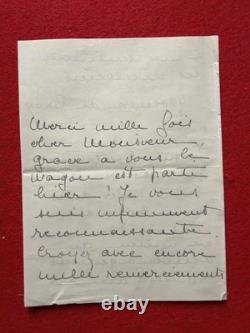 Merci mille fois
cher Monsieur,
grace a vous le
wagon est parti
hier! Je vous
suis infiniment
reconnaissante.
Croyez avec encore
mille remerciements
www.ebay5.com